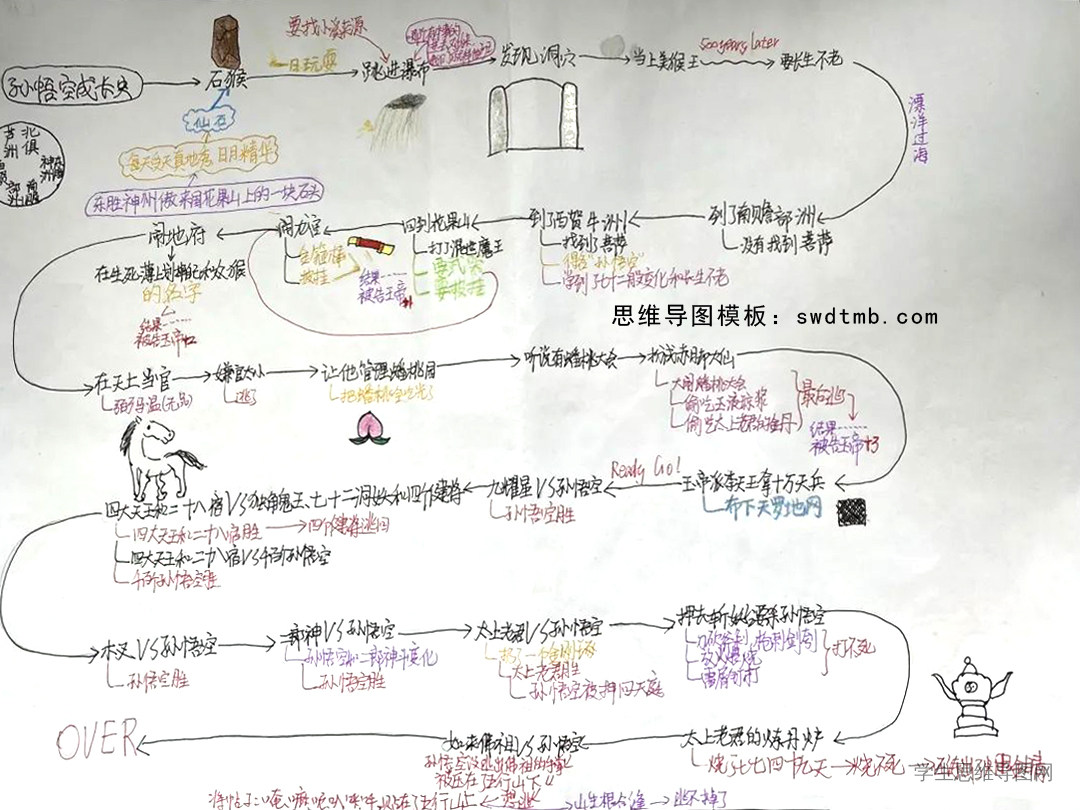 孙悟空成长史
石猴
仙石
每天受天真地秀 日月精华
东胜神州傲来国花果山上的一块石头
北俱芦洲
一日玩耍
要找小溪来源
跳进瀑布
发现洞穴
当上美猴王
500 years later
要长生不老
漂洋过海
到了南赡部洲
没有找到菩萨
到了西贺牛洲
找到了菩萨
得名"孙悟空"
学到了七十二般变化和长生不老
回到花果山
打了混世魔王
要武器
要披挂
闹龙宫
金箍棒
披挂
结果
被告玉帝
闹地府
在生死薄上划掉记水猴
的名字
结果
被告玉帝
在天上当官
弼马温(无品)
嫌官太小
逃了
让他管理蟠桃园
把蟠桃全吃光了
听说有蟠桃大会
扮成赤脚大仙
大闹蟠桃大会
偷吃玉液琼浆
偷吃太上老君的丹
最后逃
结果
被告玉帝+3
玉帝派李天王拿十万天兵
布下天罗地网
Ready Go!
九耀星VS孙悟空
孙悟空胜
四大天王和二十八宿VS独角鬼王、七十二洞妖和四个健将
四大天王和二十八宿胜
四个健将逃回
四大天王和二十八宿VS千百个孙悟空
千百个孙悟空胜
木叉VS孙悟空
孙悟空胜
二郎神VS孙悟空
孙悟空和二郎神斗变化
孙悟空胜
太上老君VS孙悟空
扔了一个金刚琢
太上老君胜
孙悟空被押回天庭
押去斩妖台要杀孙悟空
刀砍斧剁,枪刺剑刳
放火煨烧
雷屑钉打
打不死
太上老君的炼丹炉
烧了七七四十九天
烧不死
如来佛祖VS孙悟空
孙悟空没逃出佛祖的手掌
被压在五行山下
OVER
想逃
山生根合缝
逃不掉了
思维导图模板：swdtmb.com
学生思维导图网